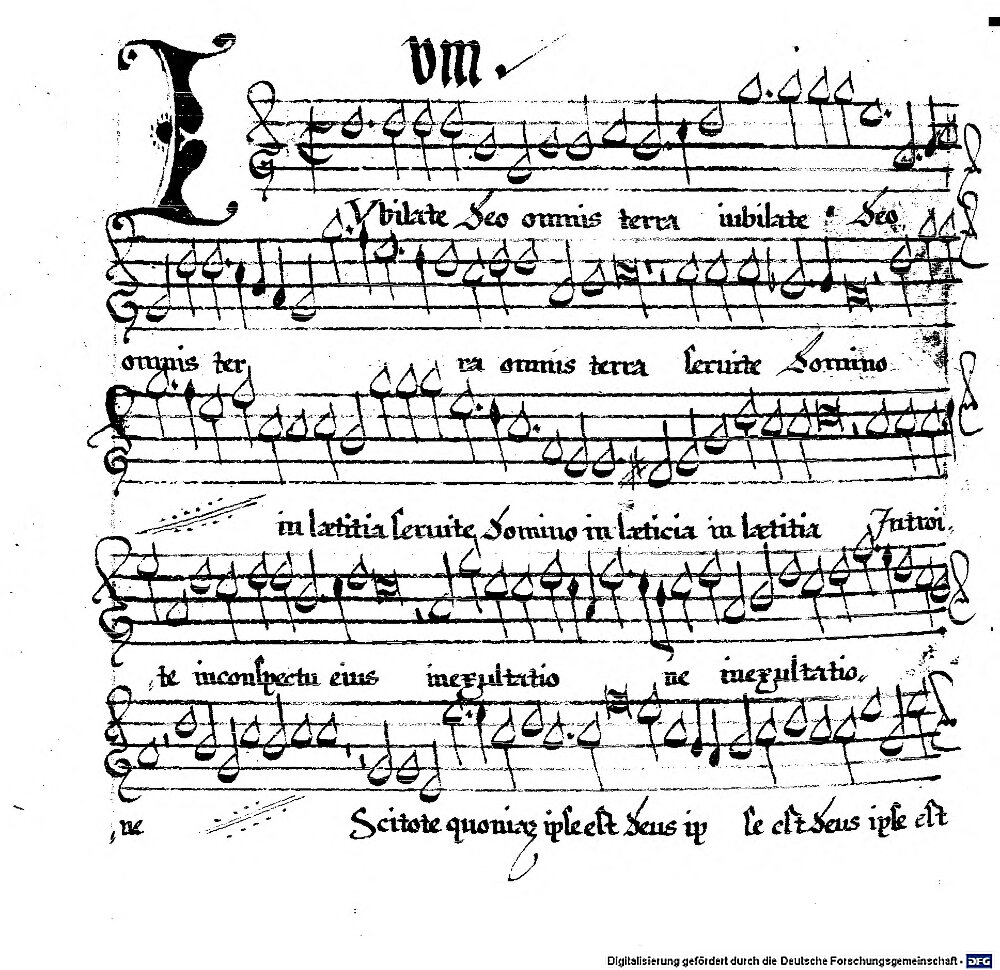 VIII.
IVbilate Deo omnis terra iubilate Deo
omnis ter ra omnis terra seruite Domino
in lætitia seruite Domino in læticia in lætitia Introi,
te in conspectu eius in exultatio ne in exultatio,
ne Scitote quoniaz ipse est Deus ip se est Deus ipse est
Digitalisierung gefördert durch die Deutsche Forschungsgemeinschaft - DFG